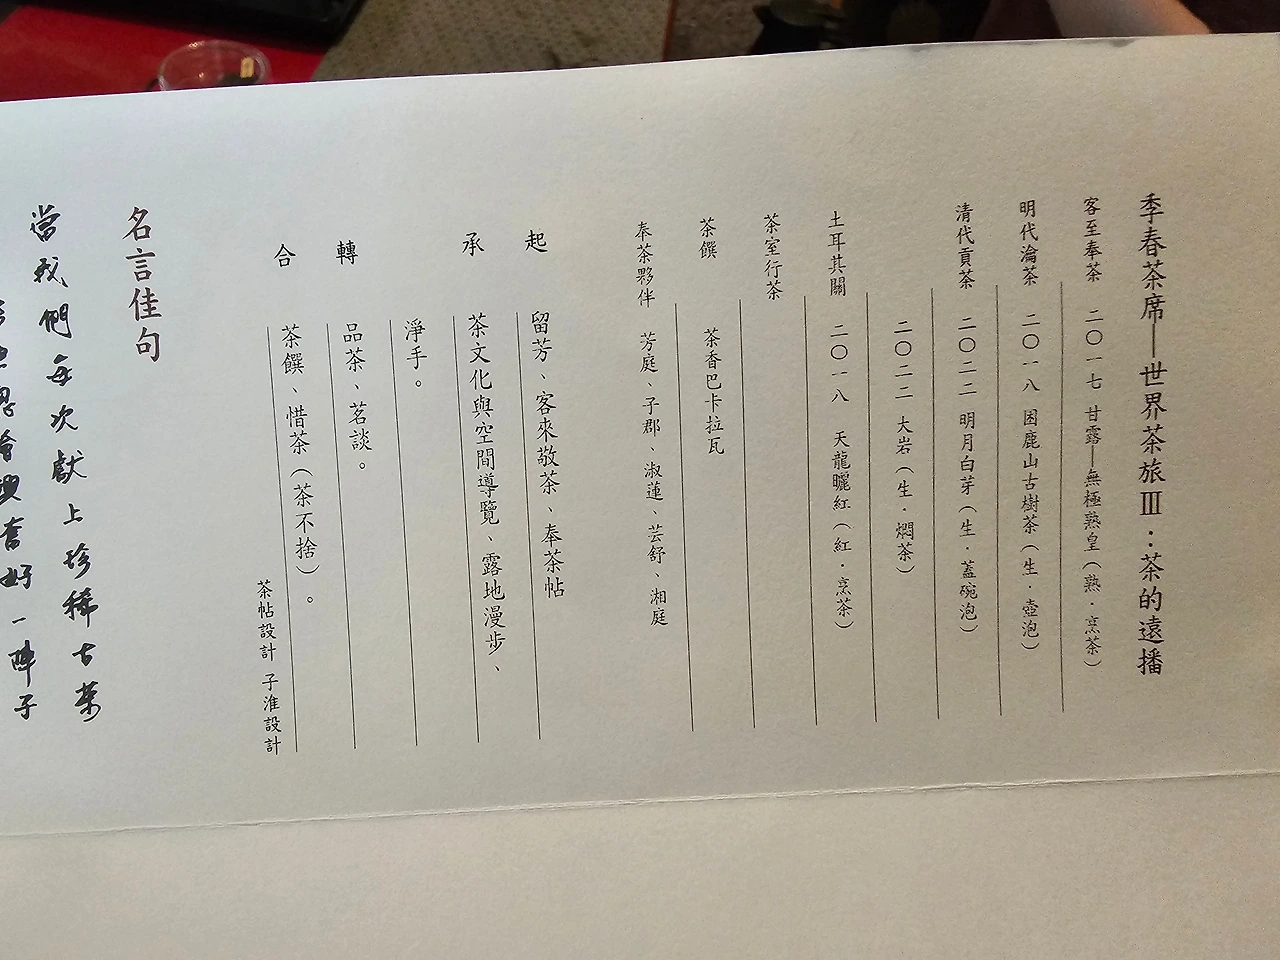 季春茶席──世界茶旅Ⅲ：茶的遠播
客至奉茶 二〇一七 甘露──無極熟皇（熟．烹茶）
明代瀹茶 二〇一八 困鹿山古樹茶（生．壺泡）
清代貢茶 二〇二二 明月白芽（生．蓋碗泡）
二〇二二 大岩（生．燜茶）
土耳其關 二〇一八 天龍曬紅（紅．烹茶）
茶室行茶
茶饌 茶香巴卡拉瓦
奉茶夥伴 芳庭、子郡、淑蓮、芸舒、湘庭
起 留芳、客來敬茶、奉茶帖
承 茶文化與空間導覽、露地漫步、
淨手。
轉 品茶、茗談。
合 茶饌、惜茶（茶不捨）。
茶帖設計 子淮設計
名言佳句
當我們每次獻上珍稀古茶
會興奮好一陣子